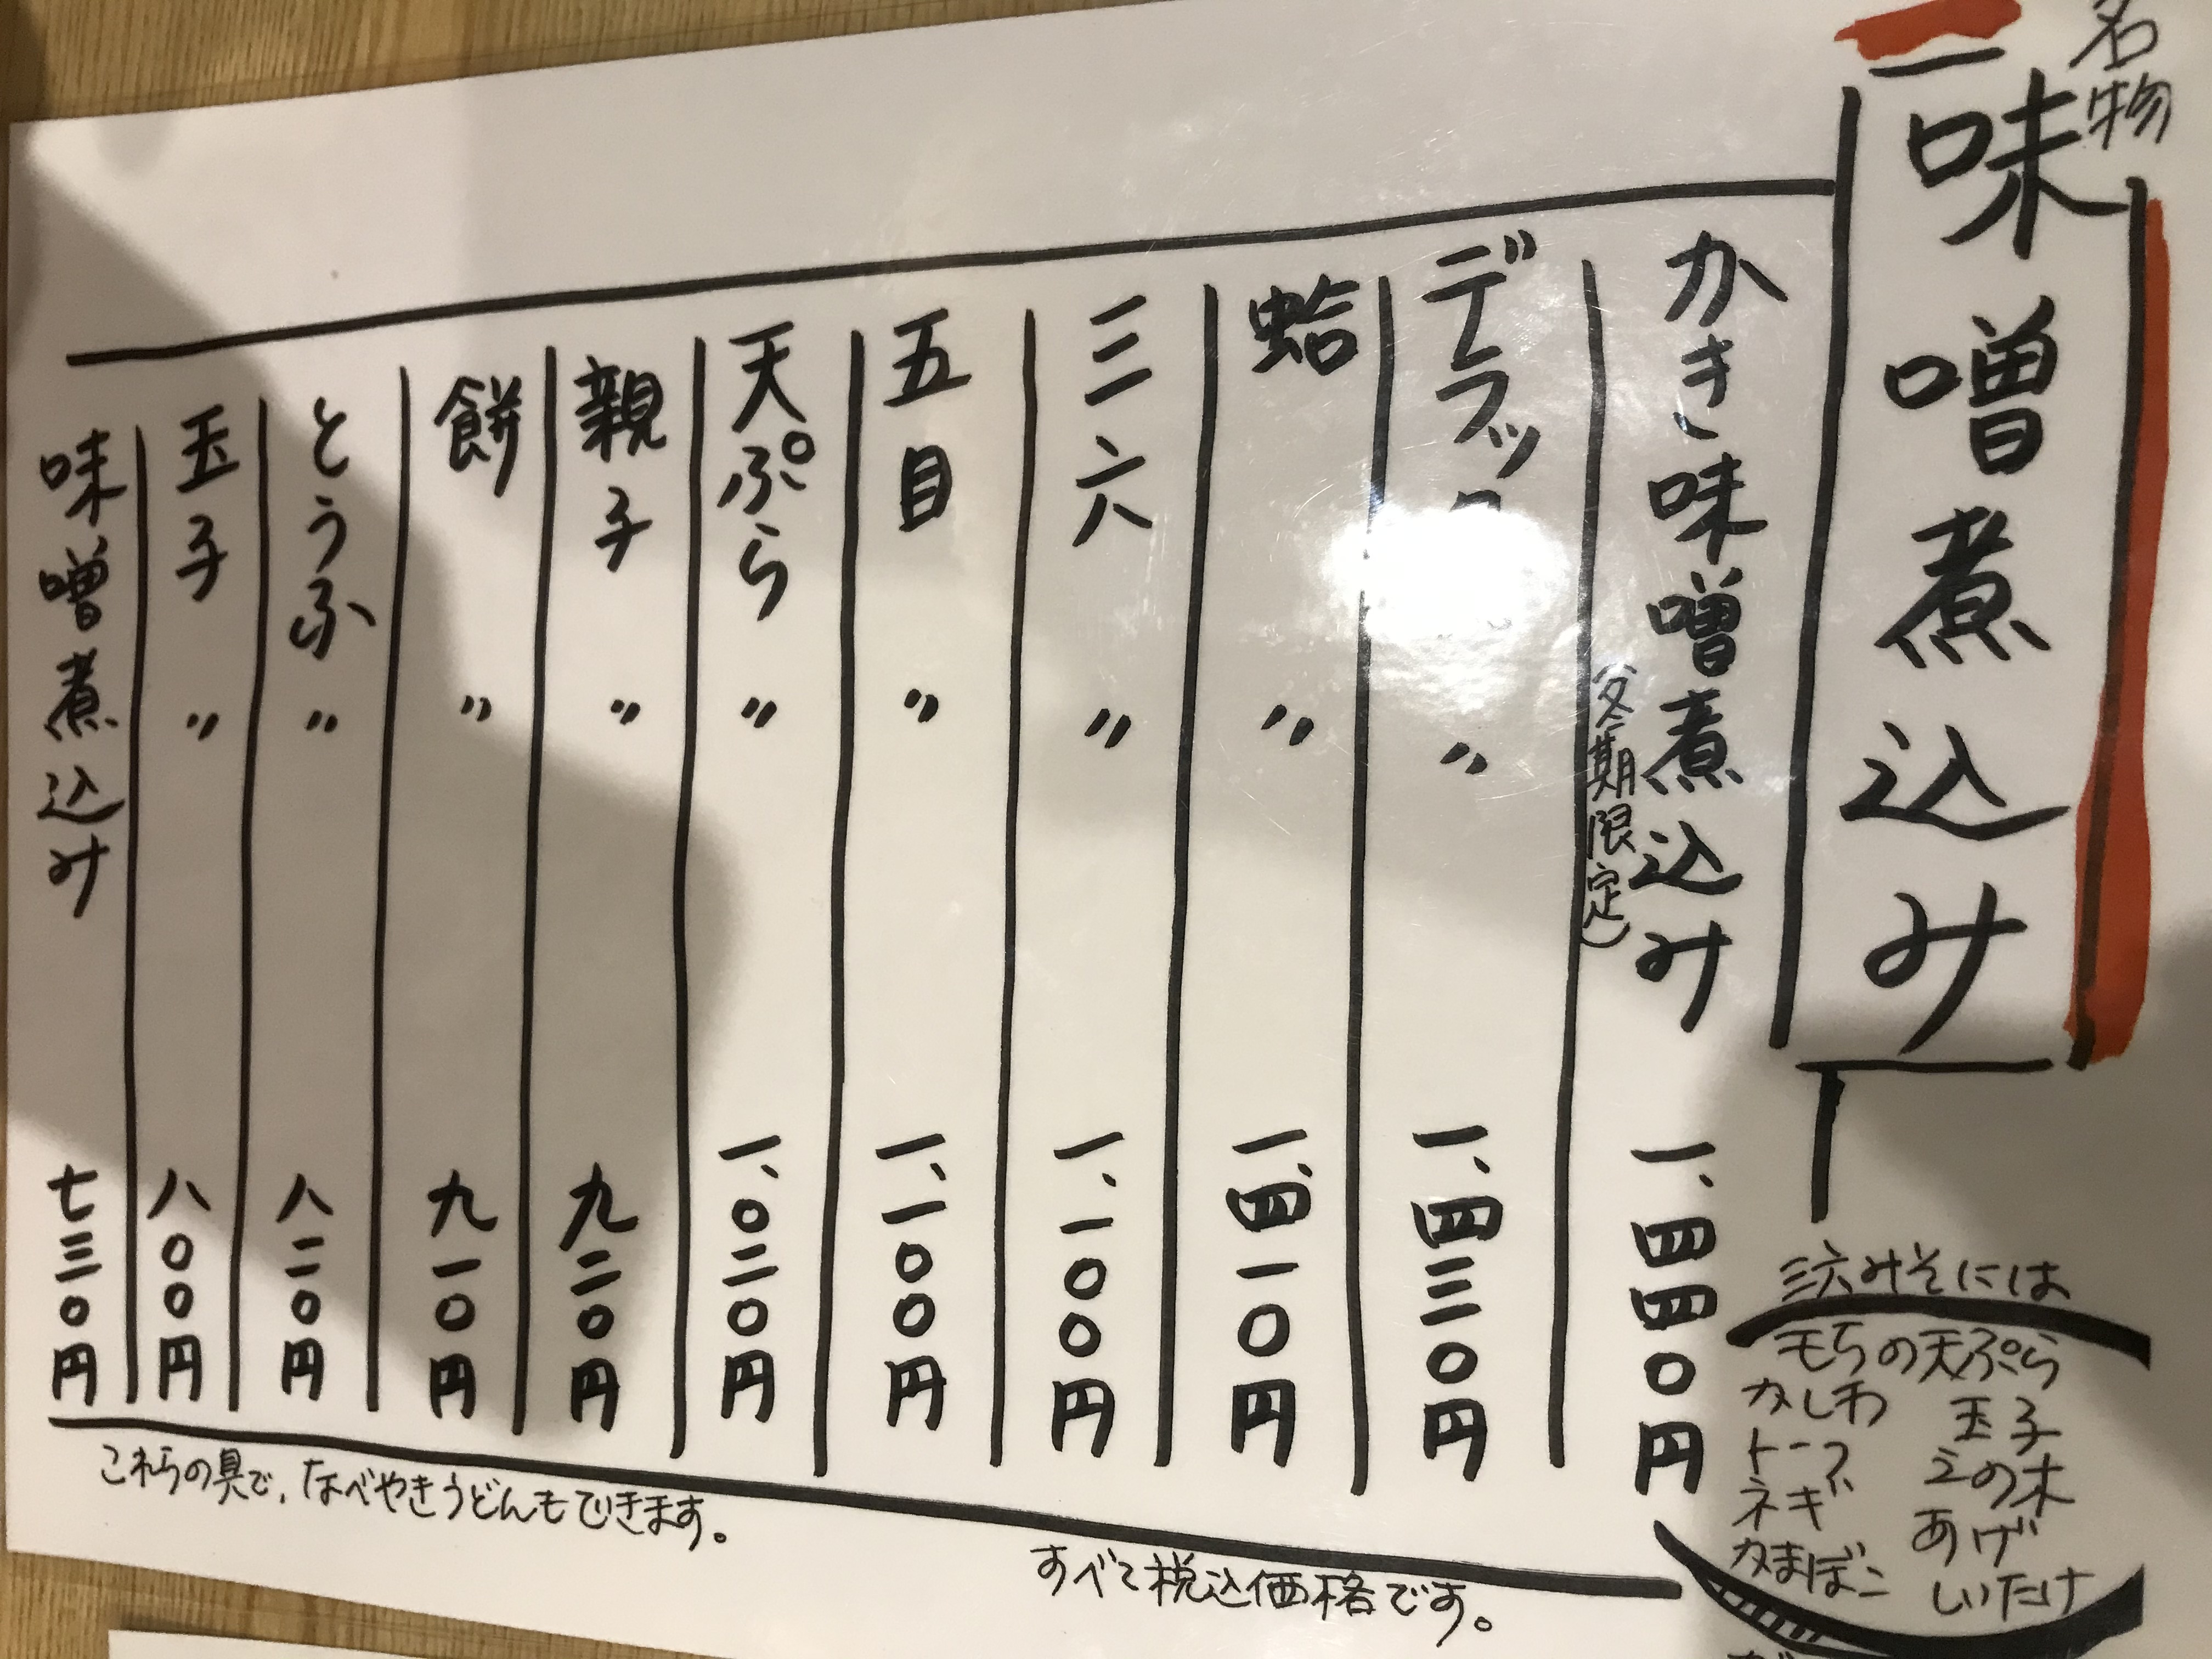 名物
味噌煮込み
かき味噌煮込み 一、四四〇円
(冬期限定)
デラックス 〃 一、四三〇円
蛤 〃 一、四一〇円
三六 〃 一、一〇〇円
五目 〃 一、一〇〇円
天ぷら 〃 一、〇二〇円
親子 〃 九二〇円
餅 〃 九一〇円
とうふ 〃 八二〇円
玉子 〃 八〇〇円
味噌煮込み 七三〇円
三六みそには
もちの天ぷら
かしわ 玉子
トーフ えの木
ネギ あげ
かまぼこ しいたけ
これらの具で、なべやきうどんもできます。
すべて税込価格です。